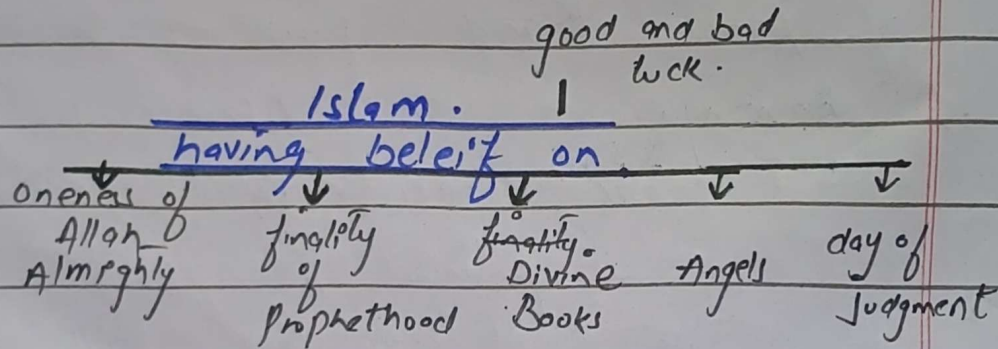 good and bad
luck.
Islam.
having beleif on
oneness of
Allah
Almighly
finality
of
Prophethood
finality.
Divine
Books
Angels
day of
Judgment